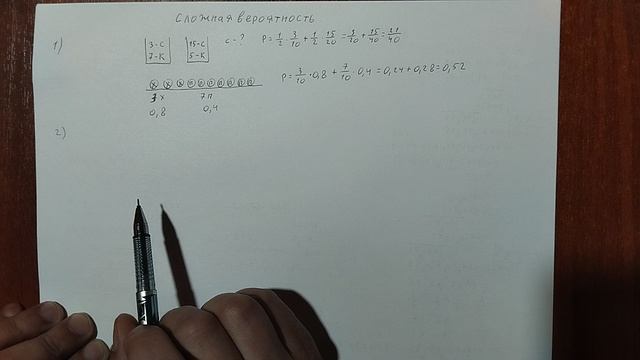 Сложная вероятность
1) 3-С 15-С С-? P = 1/2 · 3/10 + 1/2 · 15/20 = 3/20 + 15/40 = 21/40
7-К 5-К
P = 3/10 · 0,8 + 7/10 · 0,4 = 0,24 + 0,28 = 0,52
3х 7п
0,8 0,4
2)